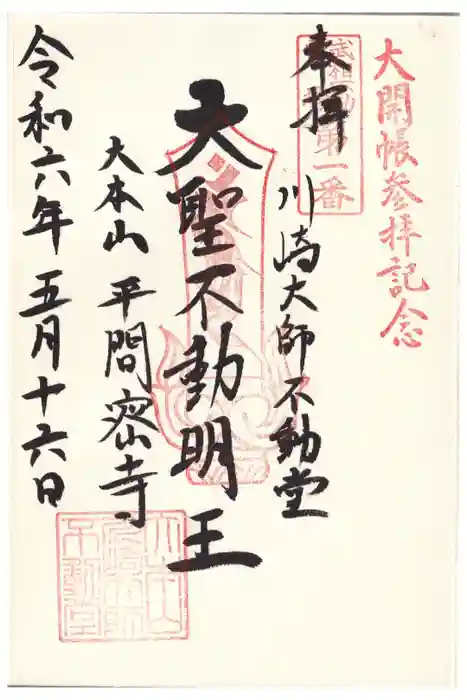 大開帳参拝記念
奉拝
第一番
川崎大師不動堂
大聖不動明王
大本山 平間密寺
令和六年 五月十六日